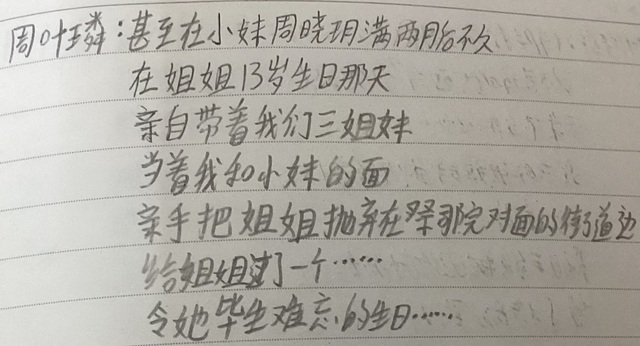 周叶璘：甚至在小妹周晓玥满两月后不久
在姐姐13岁生日那天
亲自带着我们三姐妹
当着我和小妹的面
亲手把姐姐抛弃在祭司院对面的街道边
给姐姐过了一个……
令她毕生难忘的生日……